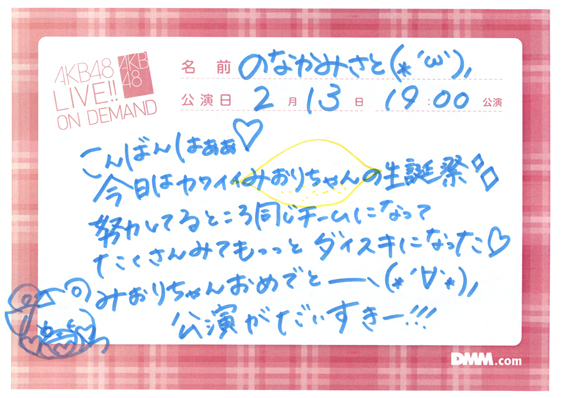 AKB48
LIVE!!
ON DEMAND
AKB
48
名前 のなかみさと(*´ω`),
公演日 2月13日 19:00 公演
こんばんはぁぁ♡
今日はカワイイみおりちゃんの生誕祭
努力してるところ同じチームになって
たくさんみてもっっとダイスキになった♡
みおりちゃんおめでとーー、(*´∀`*),
公演がだいすきー!!!
DMM.com